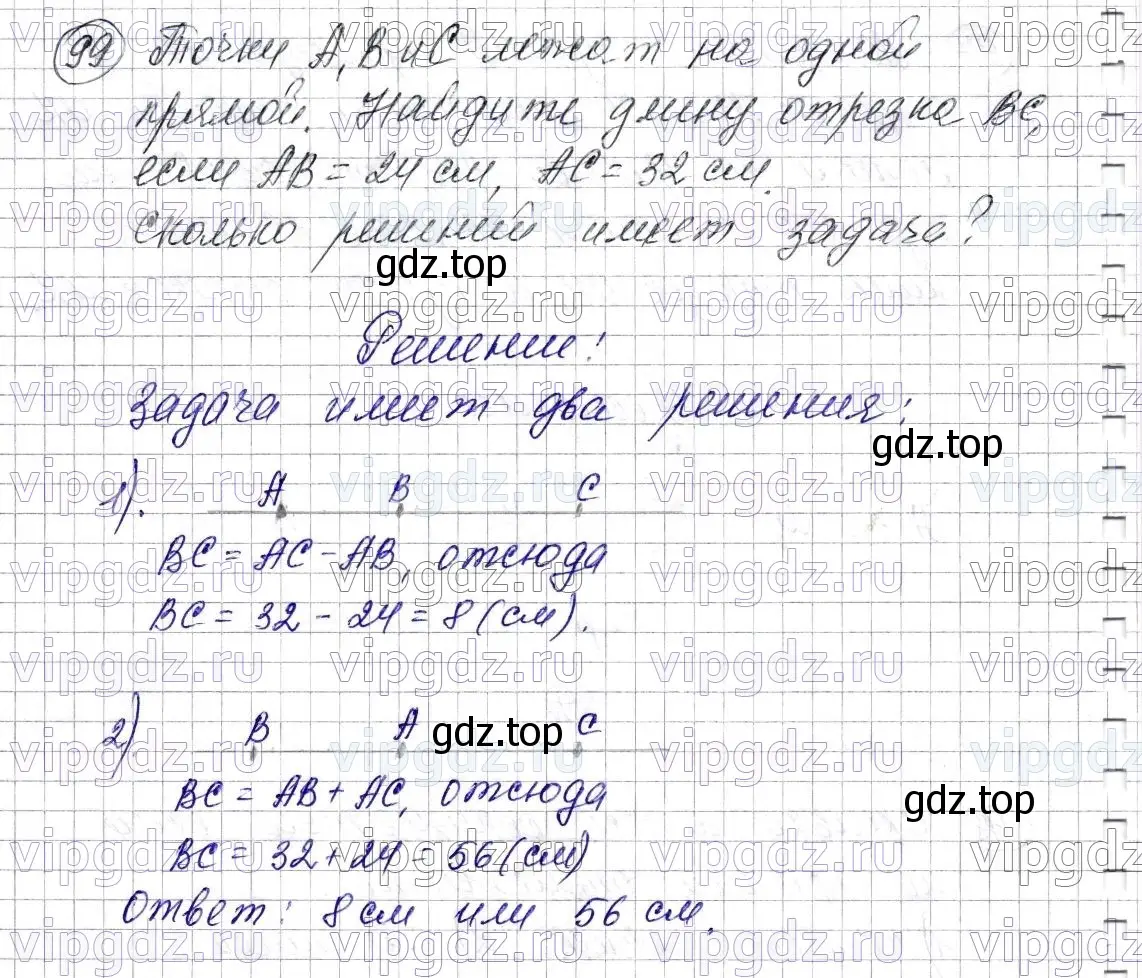 99 Точки A, B и C лежат на одной
прямой. Найдите длину отрезка BC,
если AB = 24 см, AC = 32 см.
Сколько решений имеет задача?
gdz.top
Решение:
Задача имеет два решения:
gdz.top
1). A B C
BC = AC - AB, отсюда
BC = 32 - 24 = 8 (см).
2). B A gdz.top C
BC = AB + AC, отсюда
gdz.top
BC = 32 + 24 = 56 (см)
Ответ: 8 см или 56 см.
vipgdz.ru